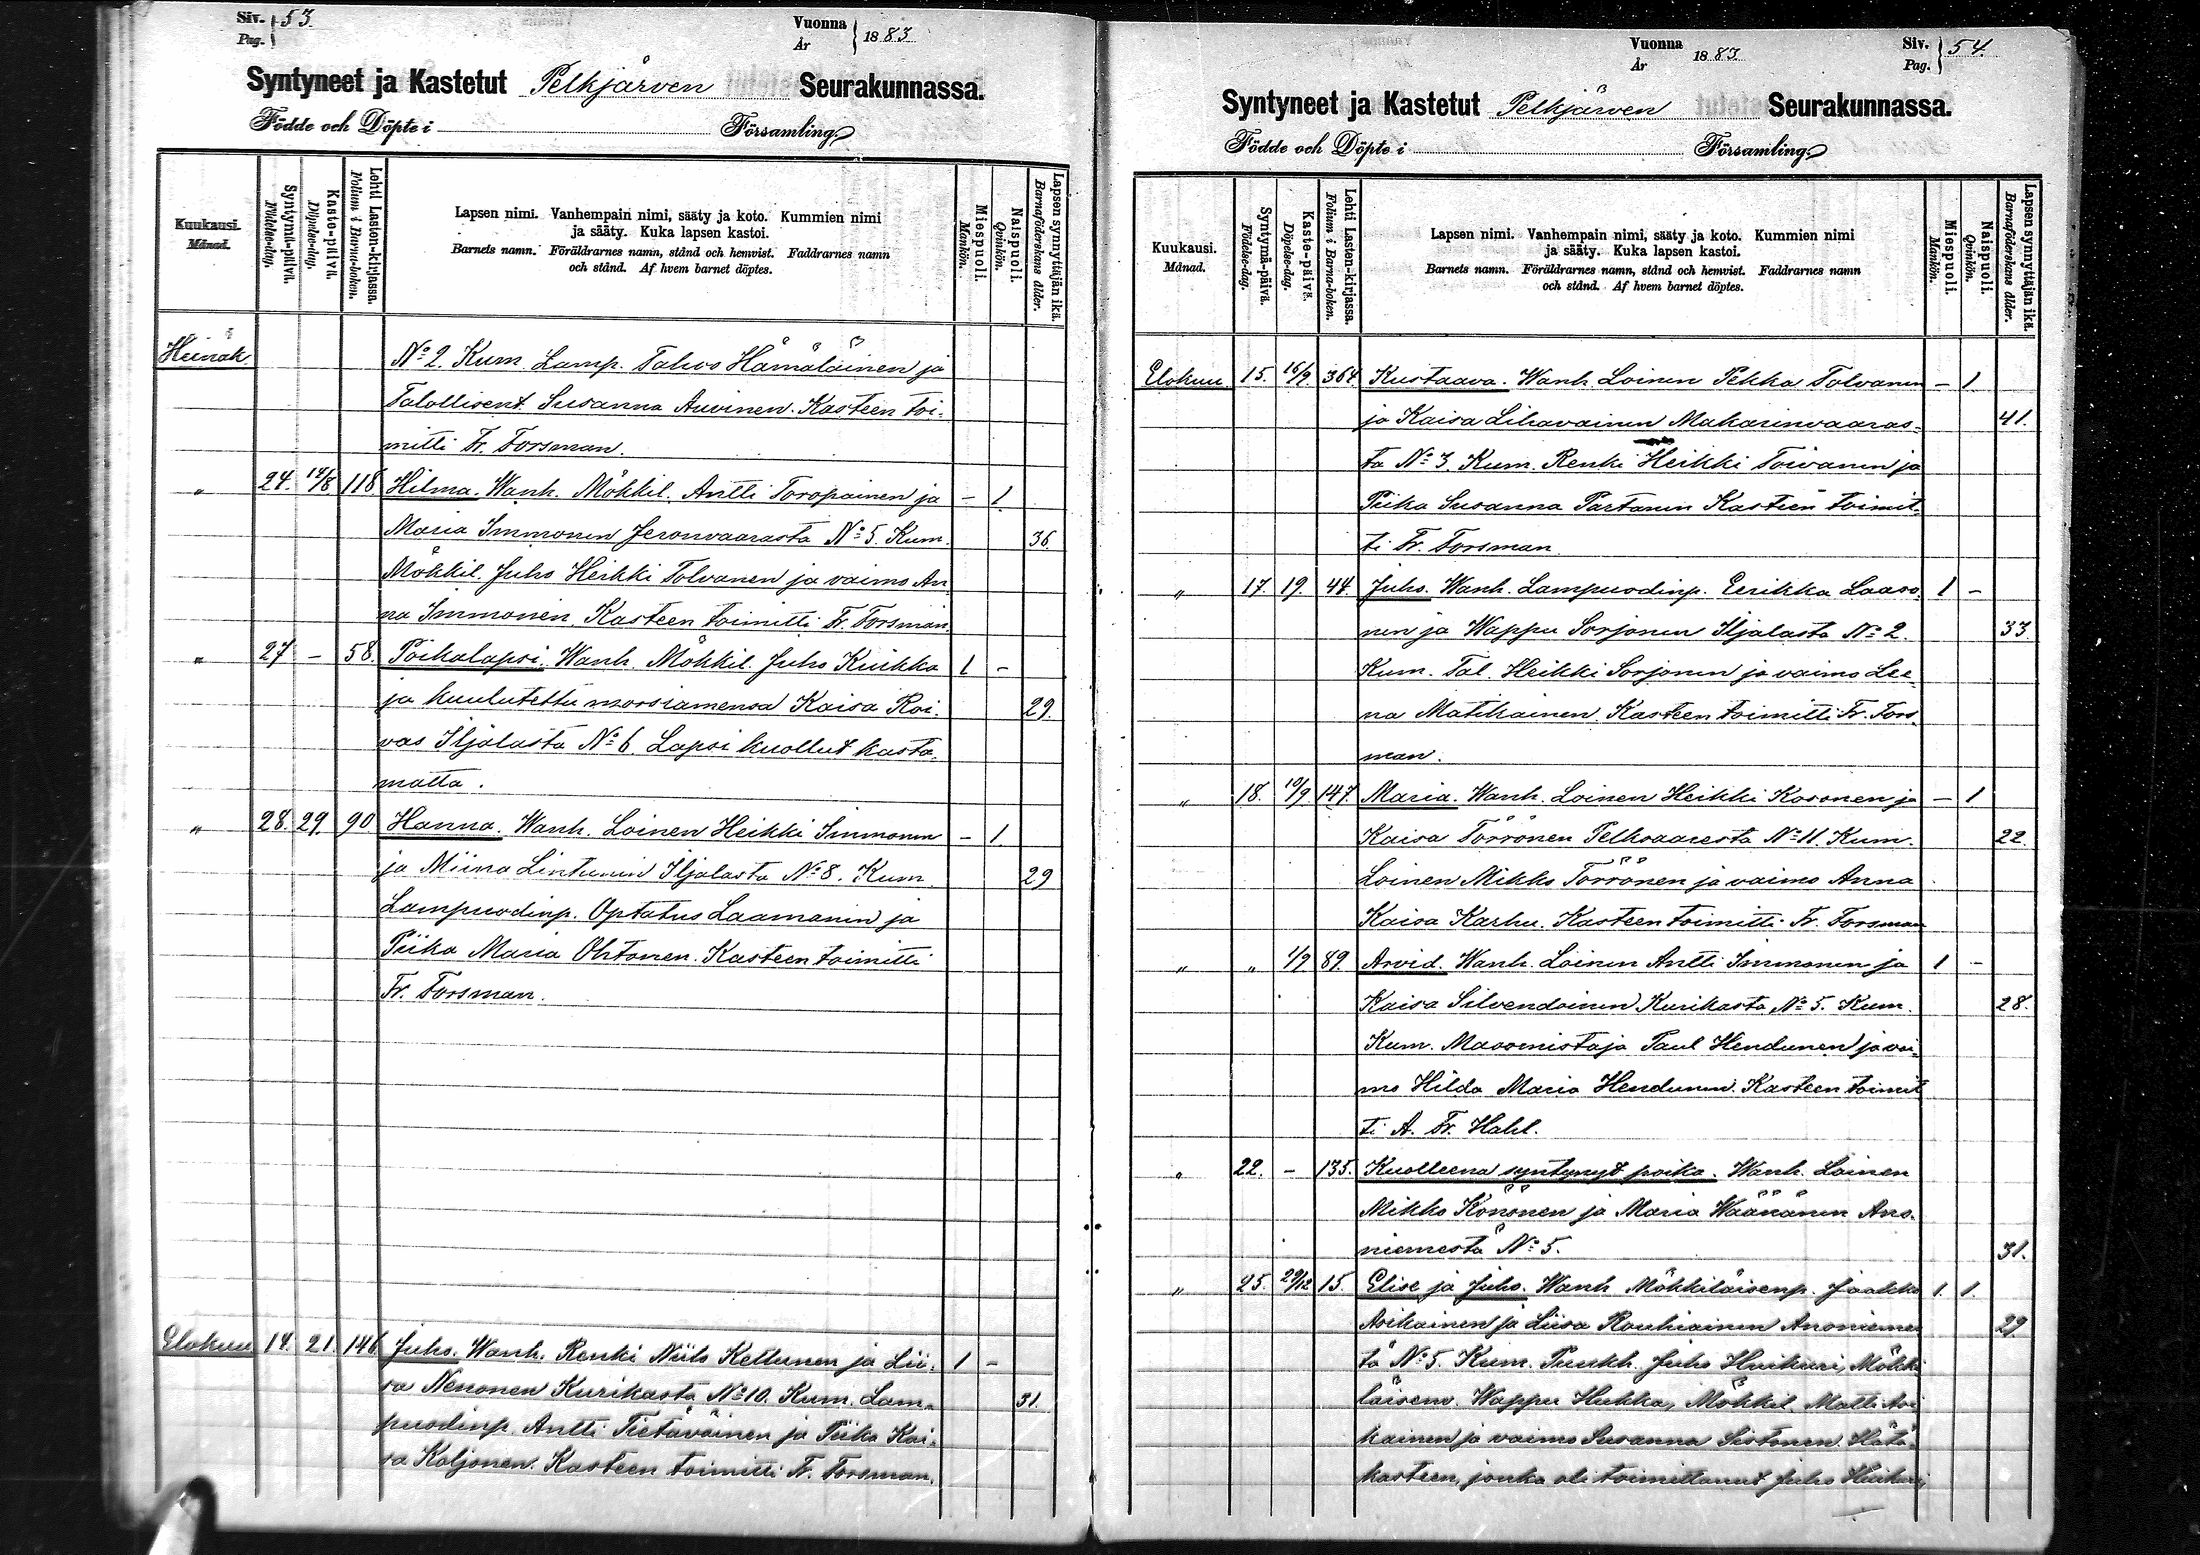 Siv. Pag. 53.
Vuonna År 1883
Syntyneet ja Kastetut Pelkjärven Seurakunnassa.
Födde och Döpte i Församling
Kuukausi. Månad.
Syntymä-päivä. Födelse-dag.
Kaste-päivä. Döpelse-dag.
Lehti Lasten-kirjassa. Folium i Barna-boken.
Lapsen nimi. Vanhempain nimi, sääty ja koto. Kummien nimi
ja sääty. Kuka lapsen kastoi.
Barnets namn. Föräldrarnes namn, stånd och hemvist. Faddrarnes namn
och stånd. Af hvem barnet döptes.
Miespuoli. Mankön.
Naispuoli. Qvinkön.
Lapsen synnyttäjän ikä. Barnaföderskans ålder.
Heinäk. No 2. Kum. Lamp. Tahvo Hämäläinen ja
Talollisent. Susanna Auvinen. Kasteen toi-
mitti Fr. Forsman.
„ 24. 14/8 118 Hilma. Wanh. Mökkil. Antti Toropainen ja – 1.
Maria Immonen Jeronvaarasta No 5. Kum. 36.
Mökkil. Juho Heikki Tolvanen ja vaimo An
na Immonen. Kasteen toimitti Fr. Forsman.
„ 27 – 58. Poikalapsi. Wanh. Mökkil. Juho Kuikka 1 –
ja kuulutettu morsiamensa Kaisa Roi- 29.
vas Iljalasta No 6. Lapsi kuollut kasta-
matta.
„ 28. 29. 90 Hanna. Wanh. Loinen Heikki Immonen – 1
ja Miina Lintunen Iljalasta No 8. Kum. 29
Lampuodinp. Optatus Laamanen ja
Piika Maria Ohtonen. Kasteen toimitti
Fr. Forsman.
Elokuu 14. 21. 146 Juho. Wanh. Renki Niilo Kettunen ja Lii- 1 –
sa Nenonen Kurikasta No 10. Kum. Lam- 31.
puodinp. Antti Tietäväinen ja Piika Kai-
sa Koljonen. Kasteen toimitti Fr. Forsman.
Vuonna År 1883.
Siv. Pag. 54.
Syntyneet ja Kastetut Pelkjärven Seurakunnassa.
Födde och Döpte i Församling
Kuukausi. Månad.
Syntymä-päivä. Födelse-dag.
Kaste-päivä. Döpelse-dag.
Lehti Lasten-kirjassa. Folium i Barna-boken.
Lapsen nimi. Vanhempain nimi, sääty ja koto. Kummien nimi
ja sääty. Kuka lapsen kastoi.
Barnets namn. Föräldrarnes namn, stånd och hemvist. Faddrarnes namn
och stånd. Af hvem barnet döptes.
Miespuoli. Mankön.
Naispuoli. Qvinkön.
Lapsen synnyttäjän ikä. Barnaföderskans ålder.
Elokuu 15. 16/9 364 Kustaava. Wanh. Loinen Pekka Tolvanen – 1
ja Kaisa Lihavainen Makarinvaaras- 41.
ta No 3. Kum. Renki Heikki Toivanen ja
Piika Susanna Partanen Kasteen toimit-
ti Fr. Forsman.
„ 17. 19. 44. Juho. Wanh. Lampuodinp. Eerikka Laaso- 1 –
nen ja Wappu Sorjonen Iljalasta No 2. 33
Kum. Tal. Heikki Sorjonen ja vaimo Lee-
na Matikainen Kasteen toimitti Fr. Fors-
man.
„ 18. 10/9 147. Maria. Wanh. Loinen Heikki Kosonen ja – 1
Kaisa Törrönen Pelksaaresta No 11. Kum. 22.
Loinen Mikko Törrönen ja vaimo Anna
Kaisa Karhu. Kasteen toimitti Fr. Forsman
„ „ 1/9 89. Arvid. Wanh. Loinen Antti Immonen ja 1 –
Kaisa Silvendoinen Kurikasta No 5. Kum. 28.
Kum. Maaomistaja Paul Hendunen ja vai-
mo Hilda Maria Hendunen. Kasteen toimit
ti A. Fr. Hahl.
„ 22. – 135. Kuolleena syntynyt poika. Wanh. Loinen
Mikko Könönen ja Maria Wäänänen Ano-
niemestä No 5. 31.
„ 25. 29/12 15. Elise ja Juho. Wanh Mökkiläisenp. Jaakko 1. 1.
Asikainen ja Liisa Rouhiainen Anoniemes 29
tä No 5. Kum. Juho Huikuri, Mökki
läisenv. Wappu Hukka, Mökkil. Matti Asi
kainen ja vaimo Susanna Sistonen. Hätä-
kasteen, jonka oli toimittanut Juho Huikuri,